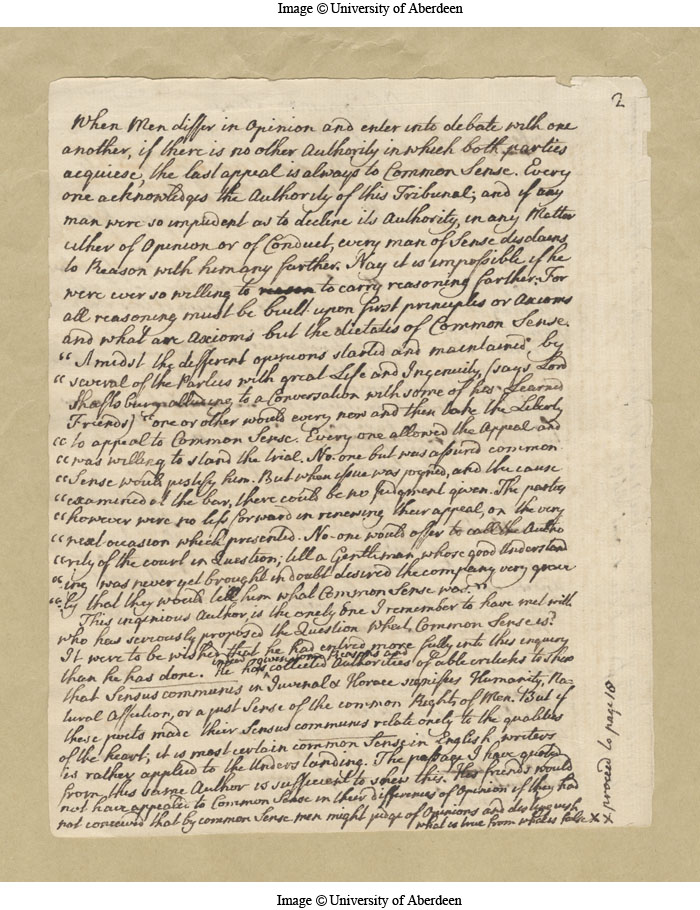 Image © University of Aberdeen
2
When Men differ in Opinion and enter into debate with one
another, if there is no other Authority in which both parties
acquiesce, the last appeal is always to Common Sense. Every
one acknowledges the Authority of this Tribunal; and if any
man were so impudent as to decline its Authority, in any Matter
either of Opinion or of Conduct, every man of Sense disdains
to Reason with him any farther. Nay it is impossible if he
were ever so willing to reason to carry reasoning farther. For
all reasoning must be built upon first principles or Axioms
and what are Axioms but the dictates of Common Sense.
“ Amidst the different opinions started and maintained by
“ several of the Parties with great Life and Ingenuity, (says Lord
Shaftsbury alluding to a Conversation with some of his Learned
Friends) “ one or other would every now and then take the Liberty
“ to appeal to Common Sense. Every one allowed the Appeal and
“ was willing to stand the trial. No-one but was assured common
“ Sense would justify him. But when issue was joyned, and the cause
“ examined at the bar, there could be no Judgment given. The parties
“ however were no less forward in renewing their appeal, on the very
“ next occasion which presented. No-one would offer to call the Autho
“ rity of the court in Question; till a Gentleman, whose good Understand
“ ing was never yet brought in doubt desired the company very grave
“ ly that they would tell him what Common Sense was.”
This ingenious Author, is the onely one I remember to have met with
who has seriously proposed the Question what Common Sense is?
It were to be wished that he had entred more fully into this enquiry
than he has done. He has collected Authorities of able criticks to shew
that Sensus communis in Juvenal & Horace signifies Humanity, Na-
tural Affection, or a just Sense of the common Rights of Men. But if
these poets made their Sensus communis relate onely to the qualities
of the heart, it is most certain common Sense in English writers
is rather applied to the Understanding. The passage I have quoted
from this same Author is sufficient to shew this. His friends would
not have appealed to Common Sense in their differences of Opinion if they had
not conceived that by common Sense men might judge of Opinions and distinguish
what is true from what is false x x
x proceed to page 18
Image © University of Aberdeen